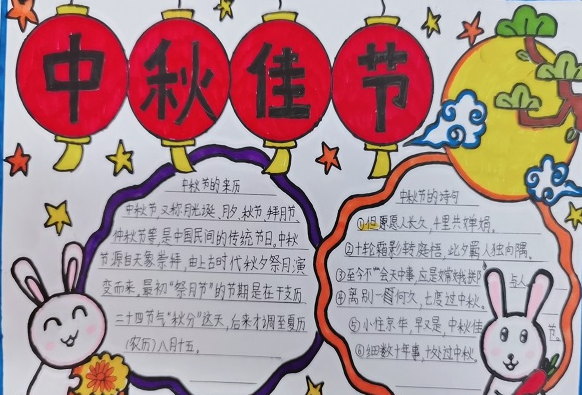 中秋佳节
中秋节的来历
中秋节,又称月光诞、月夕、秋节、拜月节、
仲秋节等,是中国民间的传统节日。中秋
节源自天象崇拜,由上古时代秋夕祭月演
变而来。最初“祭月节”的节期是在干支历
二十四节气“秋分”这天,后来才调至夏历
(农历)八月十五。
中秋节的诗句
①但愿原人长久,千里共婵娟。
②十轮霜影转庭梧,此夕羁人独向隅。
③至今不会天中事,应是嫦娥掷与人
④离别一何久,七度过中秋。
⑤小住京华,早又是,中秋佳节。
⑥细数十年事,十处过中秋。